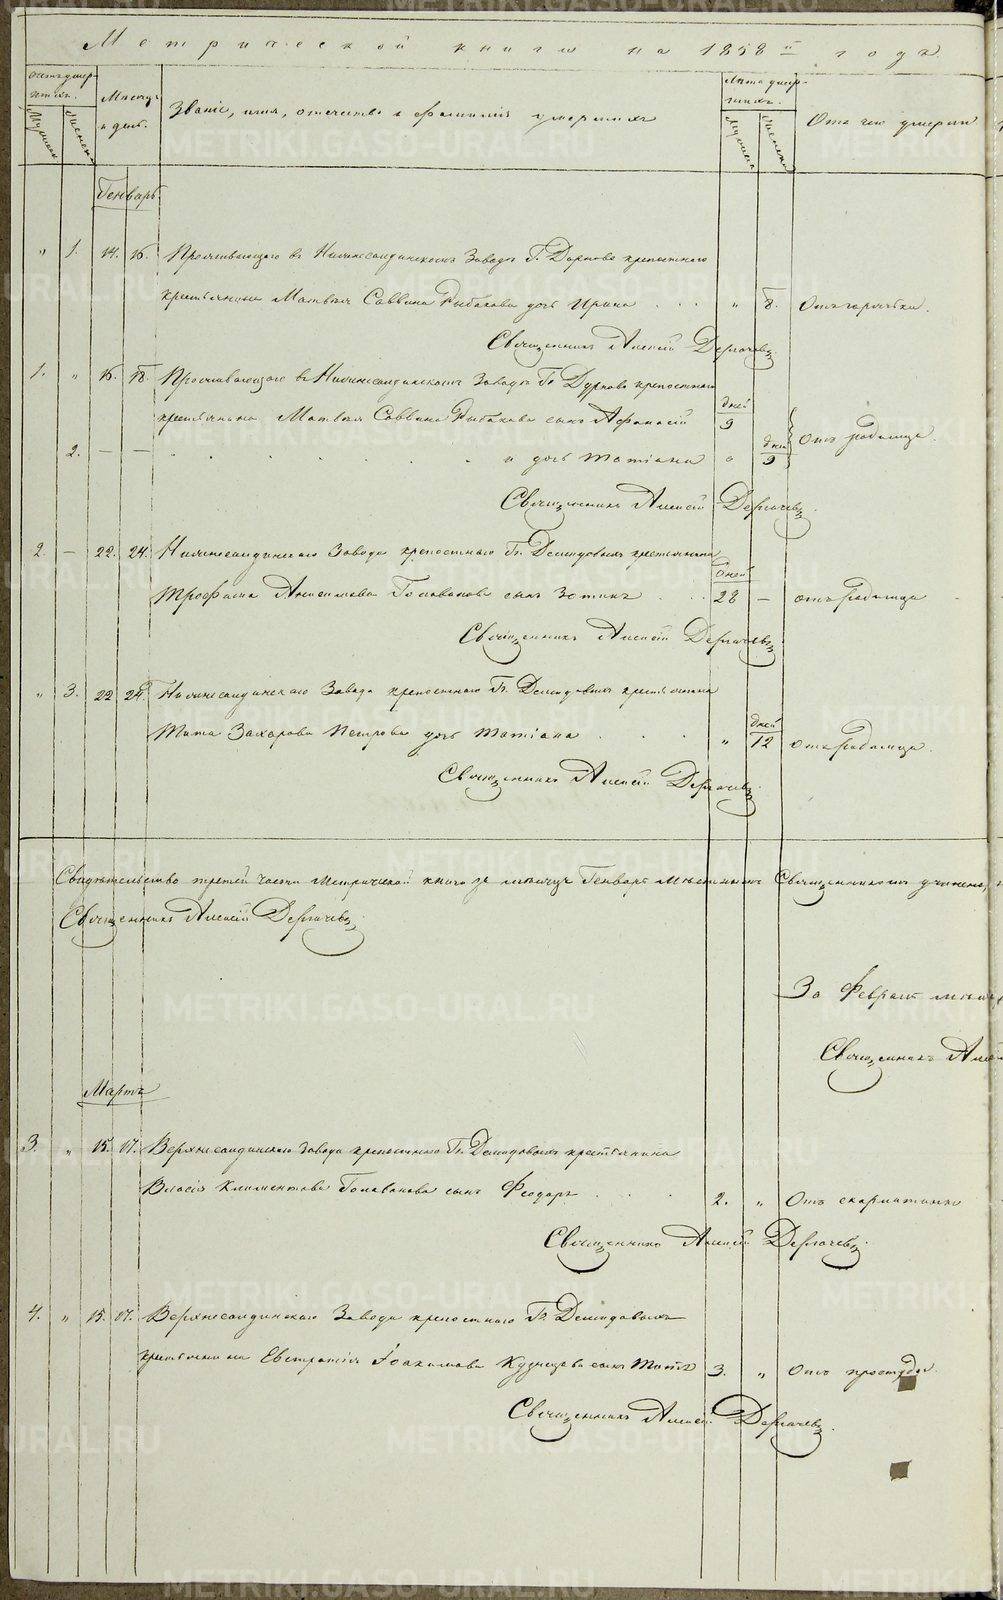 Метрической книги на 1858й годъ
Счетъ умер-
шихъ.
Мужеска
Женска
Месяцъ
и день.
Званіе, имя, отечество и фамилія умершихъ
Лета умер-
шихъ.
Мужеска
Женска
Отъ чего умерли
Генварь.
" 1. 14. 16. Проживающаго въ Нижнесалдинскомъ Заводѣ Г. Дурново крепостнаго
крестьянина Матвѣя Саввина Рыбакова дочь Ирина " 8. Отъ горячки.
Священникъ Алексій Дерячевъ
1. " 16. 18. Проживающаго въ Нижнесалдинскомъ Заводѣ Г. Дурново крепостнаго
крестьянина Матвѣя Саввина Рыбакова сынъ Афанасій дней 9
Отъ родимца.
2. — — и дочь Татіана " дней 9
Священникъ Алексій Дерячевъ
2. — 22. 24. Нижнесалдинскаго Завода крепостнаго Гг. Демидовыхъ крестьянина
Трофима Анисимова Голованова сынъ Зотикъ дней 28 — отъ родимца
Священникъ Алексій Дерячевъ
" 3. 22 24. Нижнесалдинскаго Завода крепостнаго Гг. Демидовыхъ крестьянина
Тита Захарова Петрова дочь Татіана " дней 12 отъ родимца.
Священникъ Алексій Дерячевъ
Свидѣтельство третей части Метрической книги за месяцъ Генварь Местнымъ Священникомъ учинено,
Священникъ Алексій Дерячевъ
За Февраль
Священникъ
Мартъ
3. " 15. 17. Верхнесалдинскаго Завода крепостнаго Гг. Демидовыхъ крестьянина
Власія Климентова Голованова сынъ Феодоръ 2. " Отъ скарлатины
Священникъ Алексій Дерячевъ
4. " 15. 17. Верхнесалдинскаго Завода крепостнаго Гг. Демидовыхъ
крестьянина Евстратія Іоакимова Кузнецова сынъ Титъ 3. " Отъ простуды.
Священникъ Алексій Дерячевъ
METRIKI.GASO-URAL.RU